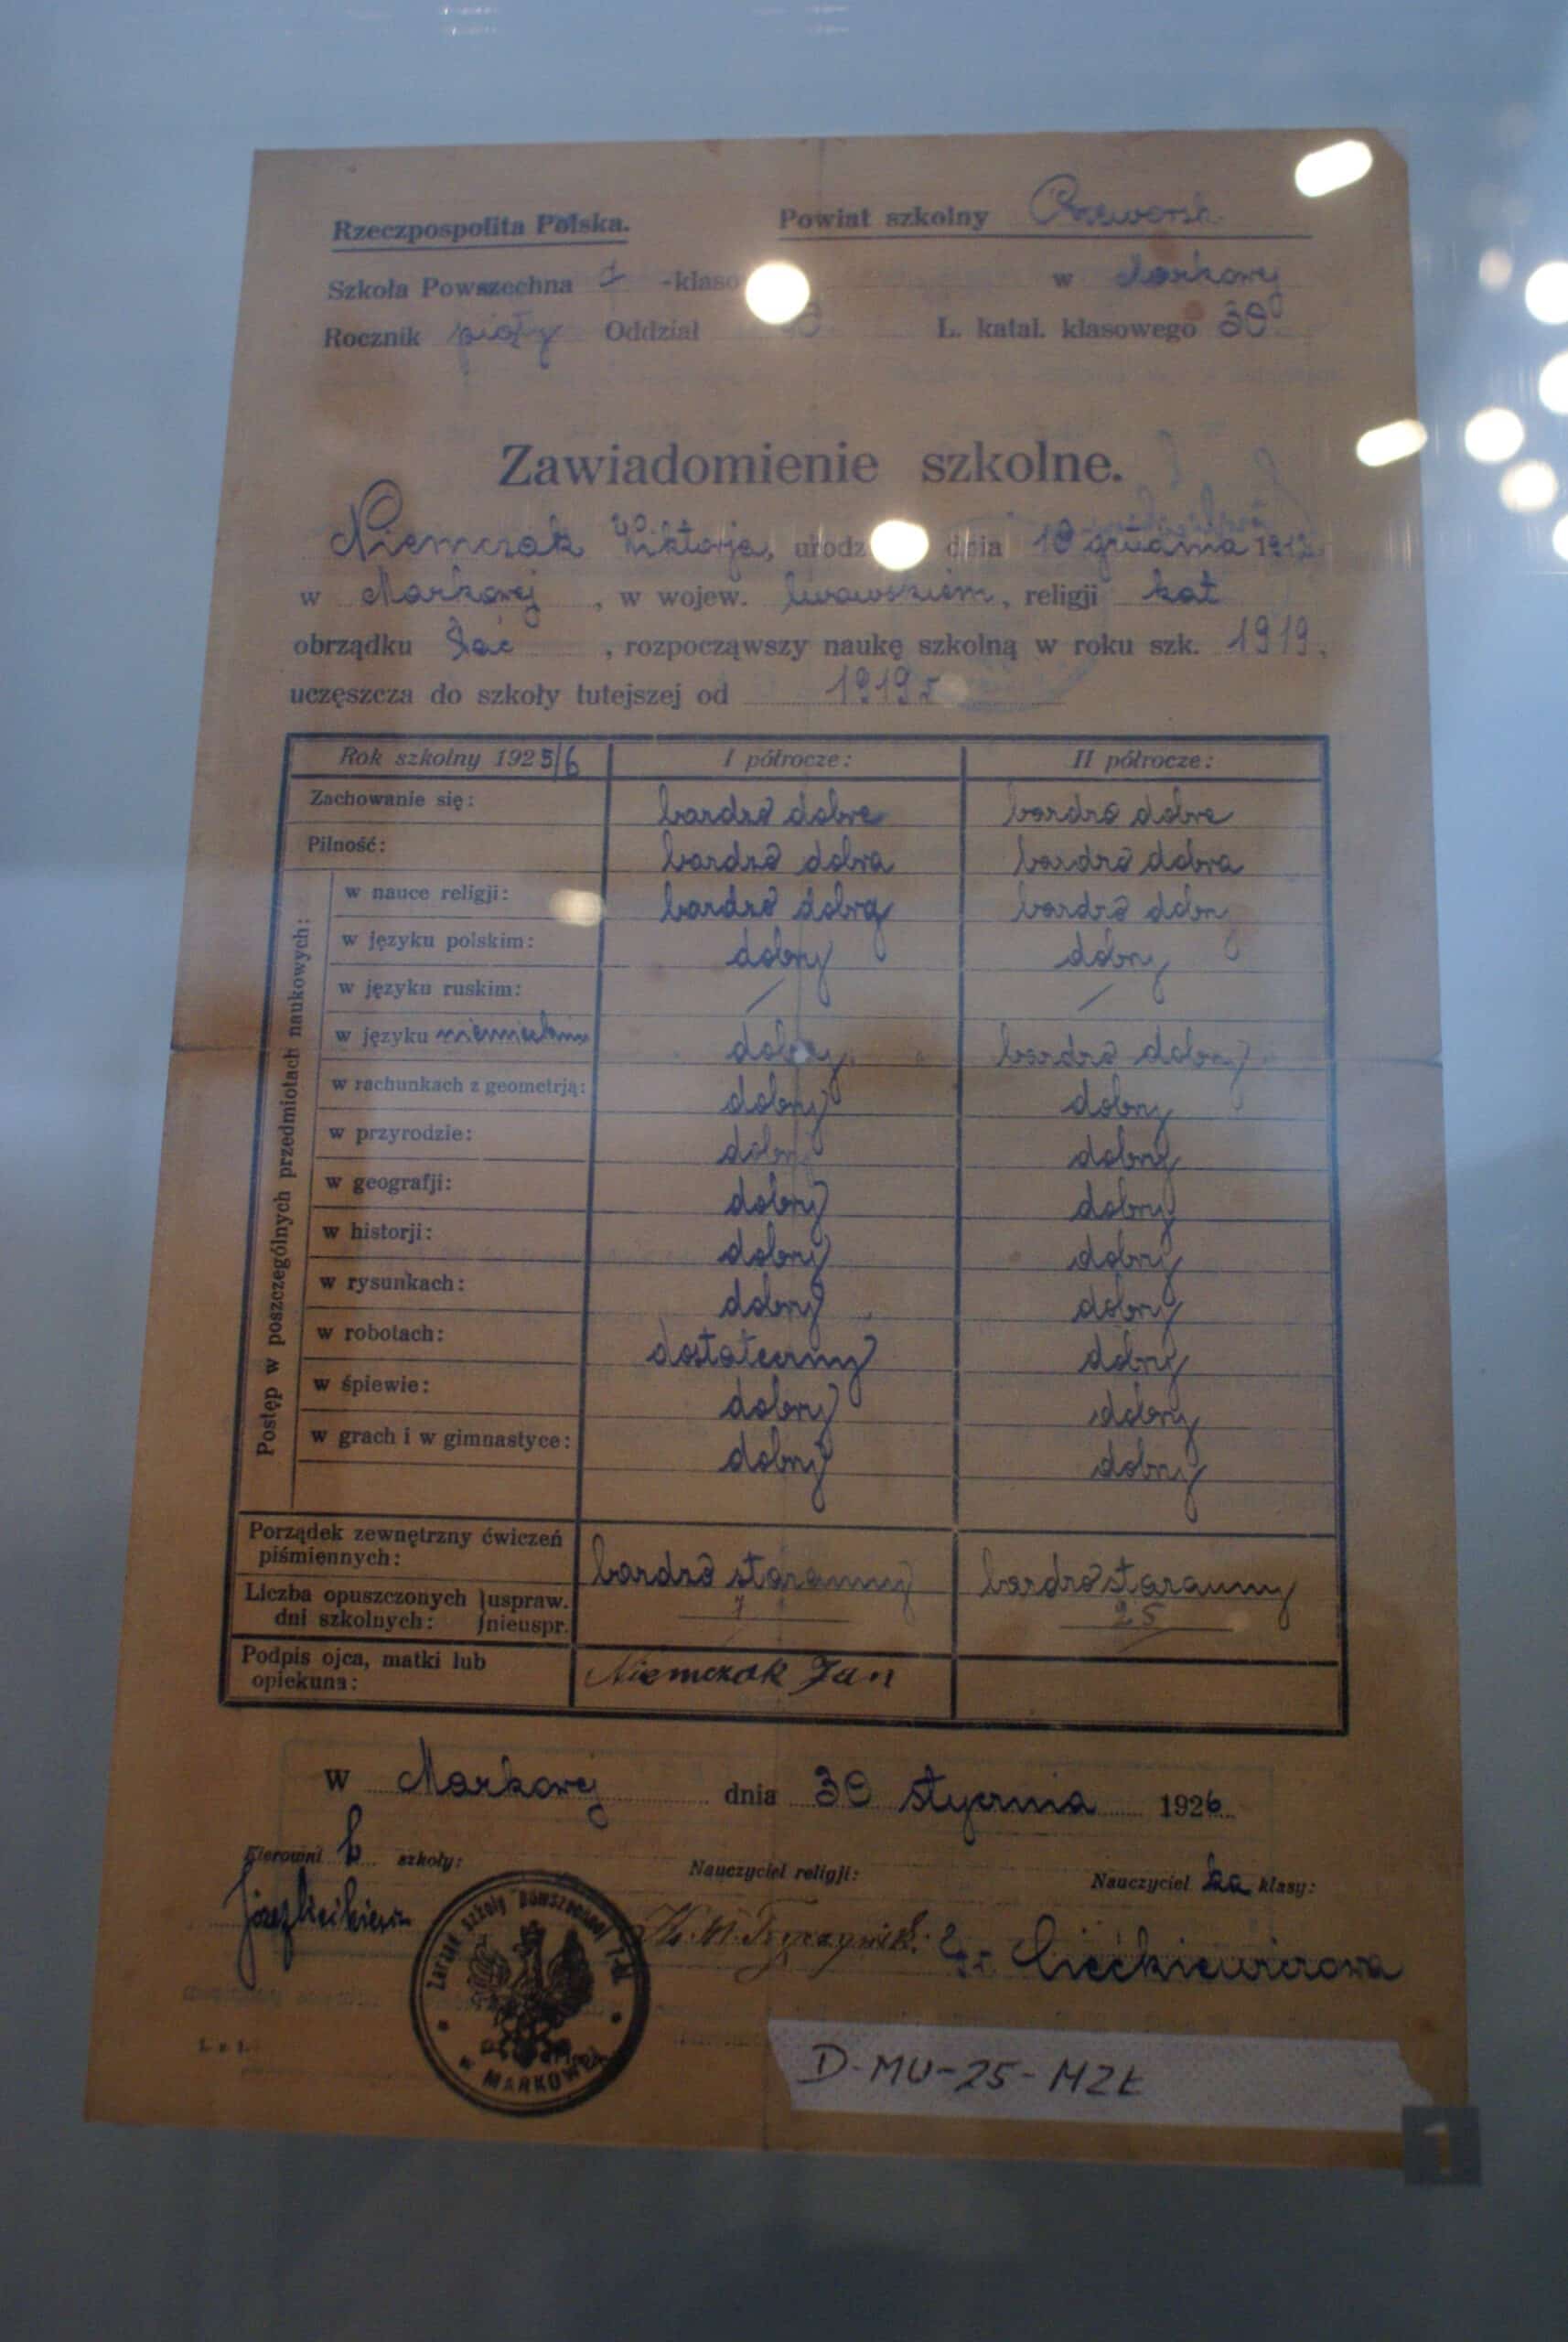 Rzeczpospolita Polska. Powiat szkolny Przeworsk
Szkoła Powszechna 7 -klaso w Markowej
Rocznik piąty Oddział L. katal. klasowego 30
Zawiadomienie szkolne.
Niemczak Wiktorja, urodz dnia 10 grudnia 1912
w Markowej, w wojew. lwowskiem, religji kat
obrządku łac, rozpocząwszy naukę szkolną w roku szk. 1919,
uczęszcza do szkoły tutejszej od 1919 r
Rok szkolny 1925/6 I półrocze: II półrocze:
Zachowanie się: bardzo dobre bardzo dobre
Pilność: bardzo dobra bardzo dobra
Postęp w poszczególnych przedmiotach naukowych:
w nauce religji: bardzo dobry bardzo dobry
w języku polskim: dobry dobry
w języku ruskim: / /
w języku niemieckim dobry bardzo dobry
w rachunkach z geometrją: dobry dobry
w przyrodzie: dobry dobry
w geografji: dobry dobry
w historji: dobry dobry
w rysunkach: dobry dobry
w robotach: dostateczny dobry
w śpiewie: dobry dobry
w grach i w gimnastyce: dobry dobry
Porządek zewnętrzny ćwiczeń
piśmiennych: bardzo staranny bardzo staranny
Liczba opuszczonych }uspraw. 7 25
dni szkolnych: }nieuspr. / /
Podpis ojca, matki lub
opiekuna: Niemczak Jan
w Markowej dnia 30 stycznia 1926
Kierowni k szkoły: Nauczyciel religji: Nauczyciel ka klasy:
Ciećkiewiczowa
Zarząd szkoły powszechnej 7-kl
w MARKOWEJ
D-MU-25-MZŁ
1